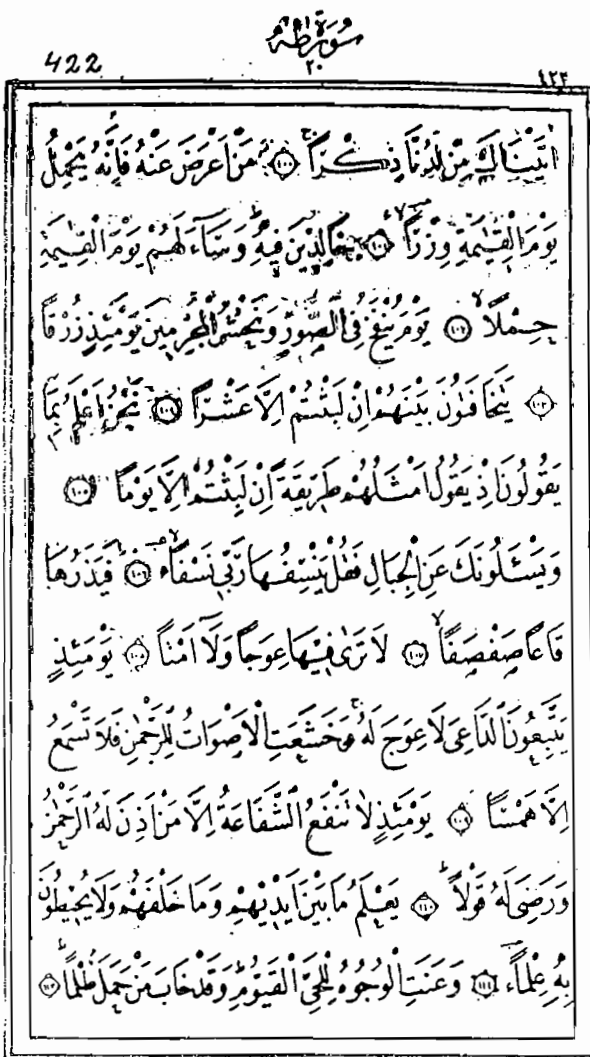 سُورَةُ طٰهٰ
422 ٢٠ ٤٢٢
اٰتَيْنَاكَ مِنْ لَدُنَّا ذِكْرًاۚ ﴿١٠٠﴾ مَنْ اَعْرَضَ عَنْهُ فَاِنَّهُ يَحْمِلُ
يَوْمَ الْقِيٰمَةِ وِزْرًاۙ ﴿١٠١﴾ خَالِدِينَ فِيهِۜ وَسَٓاءَ لَهُمْ يَوْمَ الْقِيٰمَةِ
حِمْلًاۙ ﴿١٠٢﴾ يَوْمَ يُنْفَخُ فِي الصُّورِ وَنَحْشُرُ الْمُجْرِمِينَ يَوْمَئِذٍ زُرْقًا
﴿١٠٣﴾ يَتَخَافَتُونَ بَيْنَهُمْ اِنْ لَبِثْتُمْ اِلَّا عَشْرًا ﴿١٠٤﴾ نَحْنُ اَعْلَمُ بِمَا
يَقُولُونَ اِذْ يَقُولُ اَمْثَلُهُمْ طَرِيقَةً اِنْ لَبِثْتُمْ اِلَّا يَوْمًا ﴿١٠٥﴾
وَيَسْـَٔلُونَكَ عَنِ الْجِبَالِ فَقُلْ يَنْسِفُهَا رَبِّي نَسْفًاۙ ﴿١٠٦﴾ فَيَذَرُهَا
قَاعًا صَفْصَفًاۙ ﴿١٠٧﴾ لَا تَرٰى فِيهَا عِوَجًا وَلَٓا اَمْتًا ﴿١٠٨﴾ يَوْمَئِذٍ
يَتَّبِعُونَ الدَّاعِيَ لَا عِوَجَ لَهُۚ وَخَشَعَتِ الْاَصْوَاتُ لِلرَّحْمٰنِ فَلَا تَسْمَعُ
اِلَّا هَمْسًا ﴿١٠٩﴾ يَوْمَئِذٍ لَا تَنْفَعُ الشَّفَاعَةُ اِلَّا مَنْ اَذِنَ لَهُ الرَّحْمٰنُ
وَرَضِيَ لَهُ قَوْلًا ﴿١١٠﴾ يَعْلَمُ مَا بَيْنَ اَيْدِيهِمْ وَمَا خَلْفَهُمْ وَلَا يُحِيطُونَ
بِهِ عِلْمًا ﴿١١١﴾ وَعَنَتِ الْوُجُوهُ لِلْحَيِّ الْقَيُّومِۜ وَقَدْ خَابَ مَنْ حَمَلَ ظُلْمًا ﴿١١٢﴾